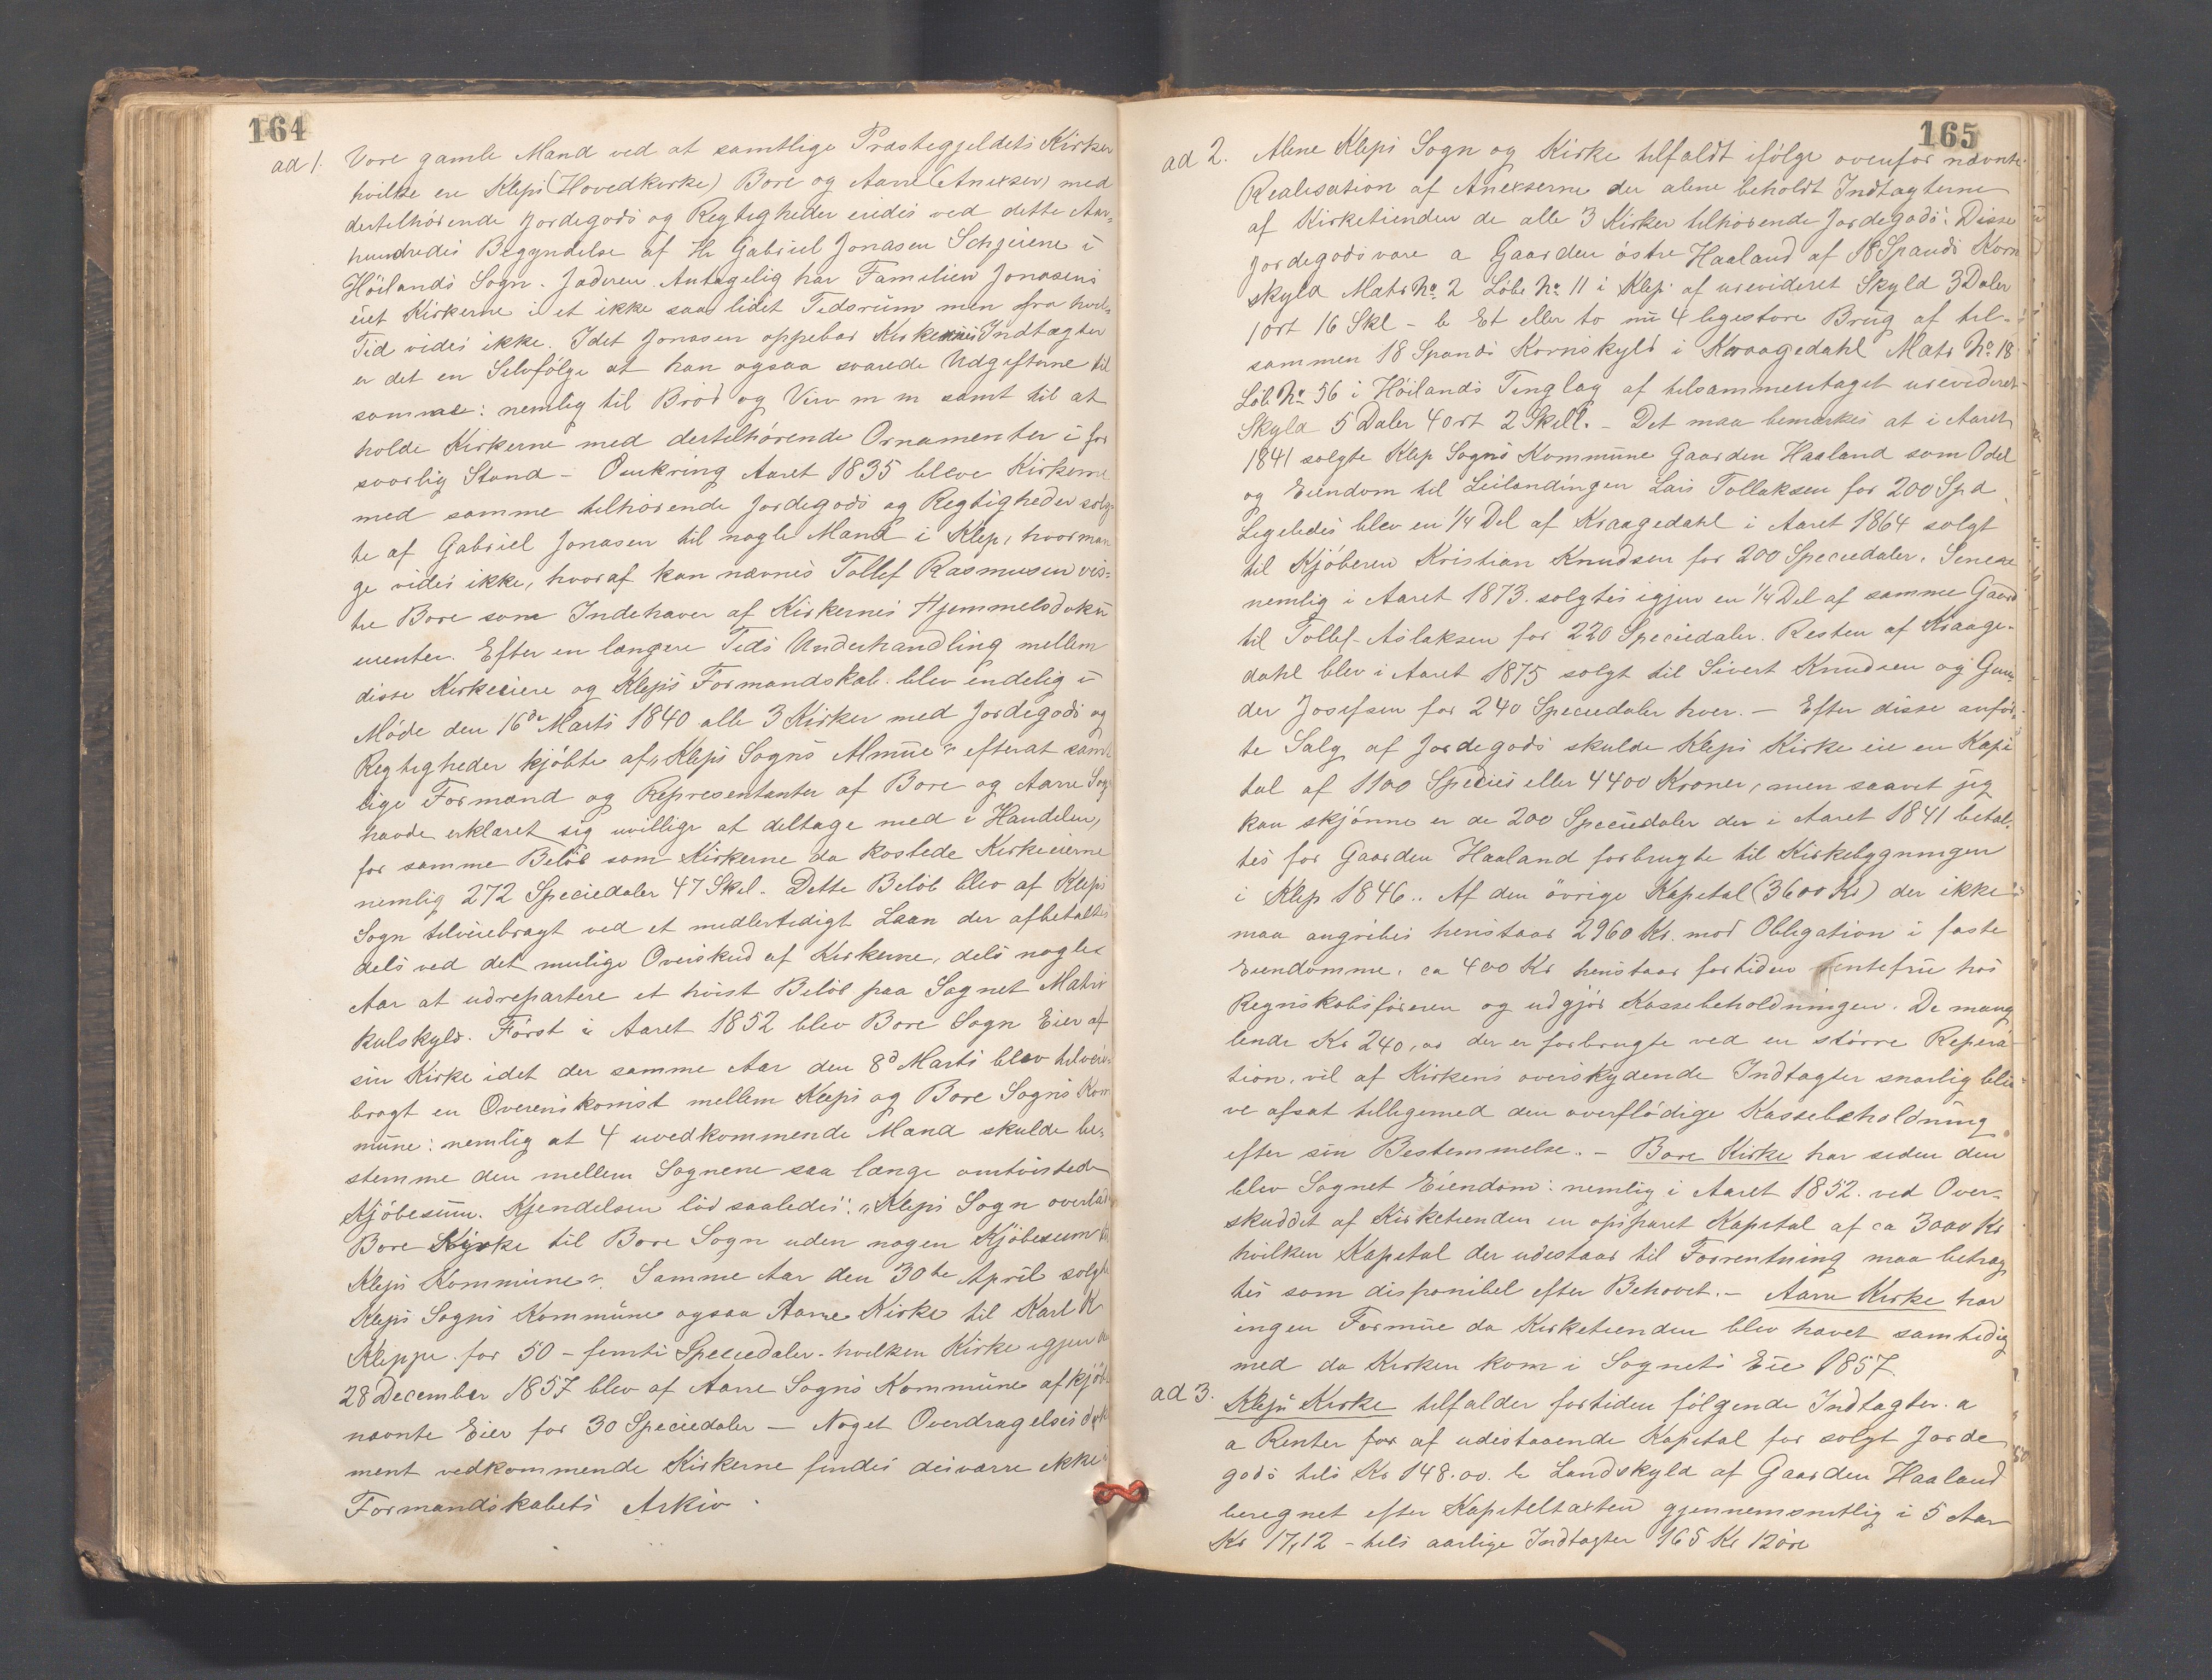 164
ad 1. Vore gamle Mænd ved at samtlige Præstegjeldets Kirker
hvilke ere Kleps (Hovedkirke) Bore og Aarre (Anexser) med
dertilhørende Jordegods og Regtigheder eiedes ved dette Aar-
hundredes Begyndelse af Hr Gabriel Jonasen Schjeiene i
Höilands Sogn. Jæderen. Antagelig har Familien Jonasens
eiet Kirkerne i et ikke saa lidet Tidsrum men fra hvil-
Tid vides ikke. Idet Jonasen oppebar Kirkernes Indtægter
er det en Selvfölge at han ogsaa svarede Udgifterne til
samme: nemlig til Bröd og Vin m m samt til at
holde Kirkerne med dertilhörende Ornamenter i for
svarlig Stand - Omkring Aaret 1835 bleve Kirkerne
med samme tilhörende Jordegods og Regtigheder solg-
te af Gabriel Jonasen til nogle Mænd i Klep, hvorman
ge vides ikke, hvoraf kan nævnes Tollef Rasmusen ves-
tre Bore som Indehaver af Kirkernes Hjemmelsdoku
menter. Efter en længere Tids Underhandling mellem
disse Kirkeeiere og Kleps Formandskab. blev endelig i
Möde den 16de Marts 1840 alle 3 Kirker med Jordegods og
Regtigheder kjöbte af „Kleps Sogns Almue" efterat samt
lige Formænd og Repræsentanter af Bore og Aarre Sog
havde erklæret sig uvillige at deltage med i Handelen,
for samme Belöb som Kirkerne da kostede Kirkeeierne
nemlig 272 Speciedaler 47 Skil. Dette Belöb blev af Kleps
Sogn tilveiebragt ved et midlertidigt Laan der afbetaltes
dels ved det mulige Overskud af Kirkerne, dels nogle
Aar at udrepartere et hvist Belöb paa Sognet Matri
kulskyld. Först i Aaret 1852 blev Bore Sogn Eier af
sin Kirke idet der samme Aar den 8d Marts blev tilveie-
bragt en Overenskomst mellem Kleps og Bore Sogns Kom
mune: nemlig at 4 uvedkommende Mænd skulde be-
stemme den mellem Sognene saa længe omtvistede
Kjöbesum. Kjendelsen löd saaledes: „Kleps Sogn overlad
Bore Kirke til Bore Sogn uden nogen Kjöbesum til
Kleps Kommune". Samme Aar den 30te April solgte
Kleps Sogns Kommune ogsaa Aarre Kirke til Karl K
Kleppe for 50 - femti Speciedaler. hvilken Kirke igjen
28 December 1857 blev af Aarre Sogns Kommune afkjöbt
nævnte Eier for 30 Speciedaler - Noget Overdragelses dok
ment vedkommende Kirkerne findes desværre ikke
Formandskabets Arkiv.
165
ad 2. Alene Kleps Sogn og Kirke tilfaldt ifölge ovenfor nævnte
Realisation af Anexserne der alene beholdt Indtægterne
af Kirketienden de alle 3 Kirker tilhörende Jordegods. Disse
Jordegods vare a Gaarden östre Haaland af 18 Spands Korn
skyld Matr No 2 Löbe No 11 i Klep af urevideret Skyld 3 Daler
1 ort 16 Skl - b Et eller to nu 4 ligestore Brug af til-
sammen 18 Spands Kornskyld i Kraagedahl Matr No 18
Löb No 56 i Höilands Tinglag af tilsammentaget urevideret
Skyld 5 Daler 4 ort 2 Skill. - Det maa bemærkes at i Aaret
1841 solgte Klep Sogns Kommune Gaarden Haaland som Odel
og Eiendom til Leilændingen Lars Tollaksen for 200 Spd.
Ligeledes blev en 1/4 Del af Kraagedahl i Aaret 1864 solgt
til Kjöberen Kristian Knudsen for 200 Speciedaler. Senere
nemlig i Aaret 1873. solgtes igjen en 1/4 Del af samme Gaard
til Tollef Aslaksen for 220 Speciedaler. Resten af Kraage-
dahl blev i Aaret 1875 solgt til Sivert Knudsen og Gun-
der Josefsen for 240 Speciedaler hver. - Efter disse anför-
te Salg af Jordegods skulde Kleps Kirke eie en Kapi
tal af 1100 Species eller 4400 Kroner, men saavit jeg
kan skjönne er de 200 Speciedaler der i Aaret 1841 betal-
tes for Gaarden Haaland forbrugte til Kirkebygningen
i Klep 1846.. Af den övrige Kapital (3600 Kr) der ikke
maa angribes henstaar 2960 Kr. mod Obligation i faste
Eiendomme, ca 400 Kr henstaar fortiden rentefrie hos
Regnskabsföreren og udgjör Kassebeholdningen. De mang
lende Kr 240,00 der er forbrugte ved en större Repera
tion, vil af Kirkens overskydende Indtægter snarlig bli-
ve afsat tilligemed den overflödige Kassebeholdning
efter sin Bestemmelse. - Bore Kirke har siden den
blev Sognet Eiendom: nemlig i Aaret 1852. ved Over-
skuddet af Kirketienden en opsparet Kapital af ca 3000 Kr
hvilken Kapital der udestaar til Forrentning maa betrag
tes som disponibel efter Behovet. - Aarre Kirke har
ingen Formue da Kirketienden blev hævet samtidig
med da Kirken kom i Sognets Eie 1857.
ad 3. Kleps Kirke tilfalder fortiden fölgende Indtægter. a
a Renter for af udestaaende Kapital for solgt Jorde
gods tils Kr 148.00. b Landskyld af Gaarden Haaland
beregnet efter Kapiteltaxten gjennemsnitlig i 5 Aar
Kr 17,12 - tils aarlige Indtægter 165 Kr 12 öre